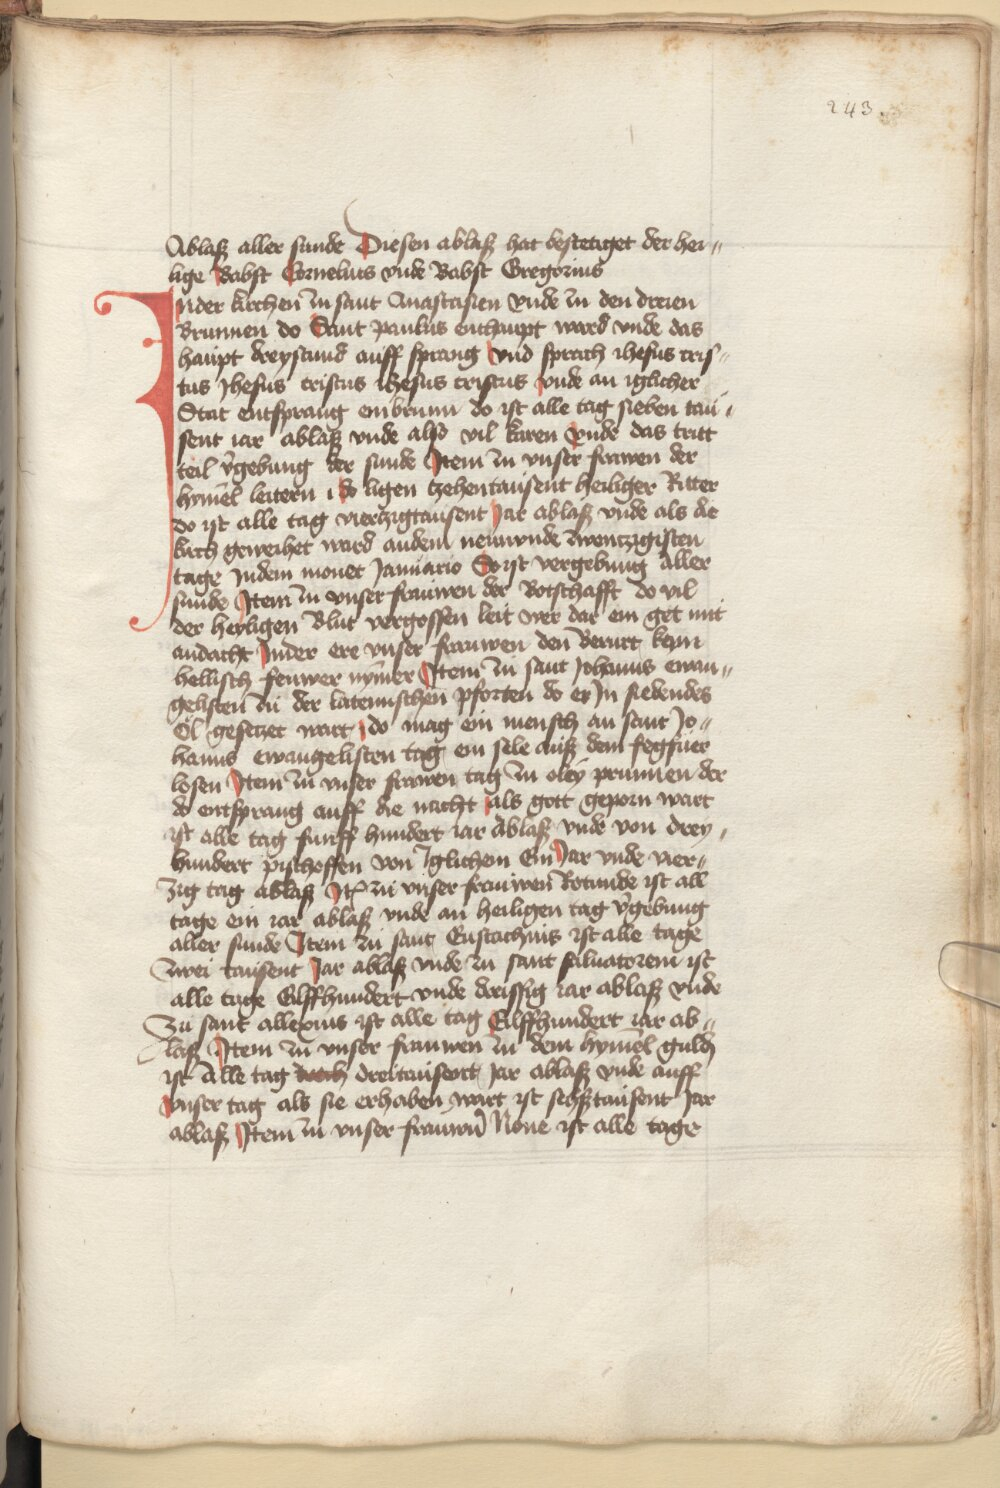 243
Ablaß aller sunde Diesen ablaß hat bestetiget der hei„
lige Babst Cornelius vnde Babst Gregorius
Inder kirchen zu sant Anastasien vnde zu den dreien
Brunnen do Sant paulus enthaupt ward vnde das
haupt dreystund auff sprang vnd sprach ihesus cris„
tus Jhesus cristus ihesus cristus vnde an iglicher
Stat entsprang ein brunn do ist alle tag sieben tau„
sent iar ablaß vnde also vil karen vnde das tritt
teil v̄gebung der sunde Item zu vnser frawen der
hymel leitern i do ligen tzehentausent heiliger Ritter
do ist alle tag vierzigtausent Jar ablaß vnde als die
kirch geweihet ward andem neunvnde zwentzigisten
tage Indem monet Januario So ist vergebung aller
sunde Item zu vnser frauwen der Botschafft do vil
der heyligen Blut vergossen leit wer dar ein get mit
andacht Inder ere vnser frauwen den Berurt kein
hellisch feuwer nȳmer Item zu sant Johanns ewan„
gelisten zu der lateinischen pforten do er In siedendes
Öl gesetzet wart do mag ein mensch an sant Jo„
hanns ewangelisten tag ein sele auß dem fegfuer
losen Item zu vnser frawen tag zu oley prunnen der
do entsprang auff die nacht als gott geporn wart
ist alle tag funff hundert iar Ablaß vnde von drey„
hundert pischoffen von Iglichem Ein Jar vnde vier„
zig tag ablaß Itē zu vnser frauwen Rotunde ist all
tage ein iar ablaß vnde an heiligen tag v̄gebung
aller sunde Item zu sant Eustachius ist alle tage
zwei tausent Jar ablaß vnde zu sant saluatorem ist
alle tage Eilffhundert vnde dreissig iar ablaß vnde
Zu sant allexius ist alle tag Eilffhundert iar ab„
laß Item zu vnser frauwen zu dem hymel guldē
ist Alle tag dreitausent Jar ablaß vnde auff
vnser tag als sie erhaben wart ist sechßtausent Jar
ablaß Item zu vnser frauwn̄ None ist alle tage